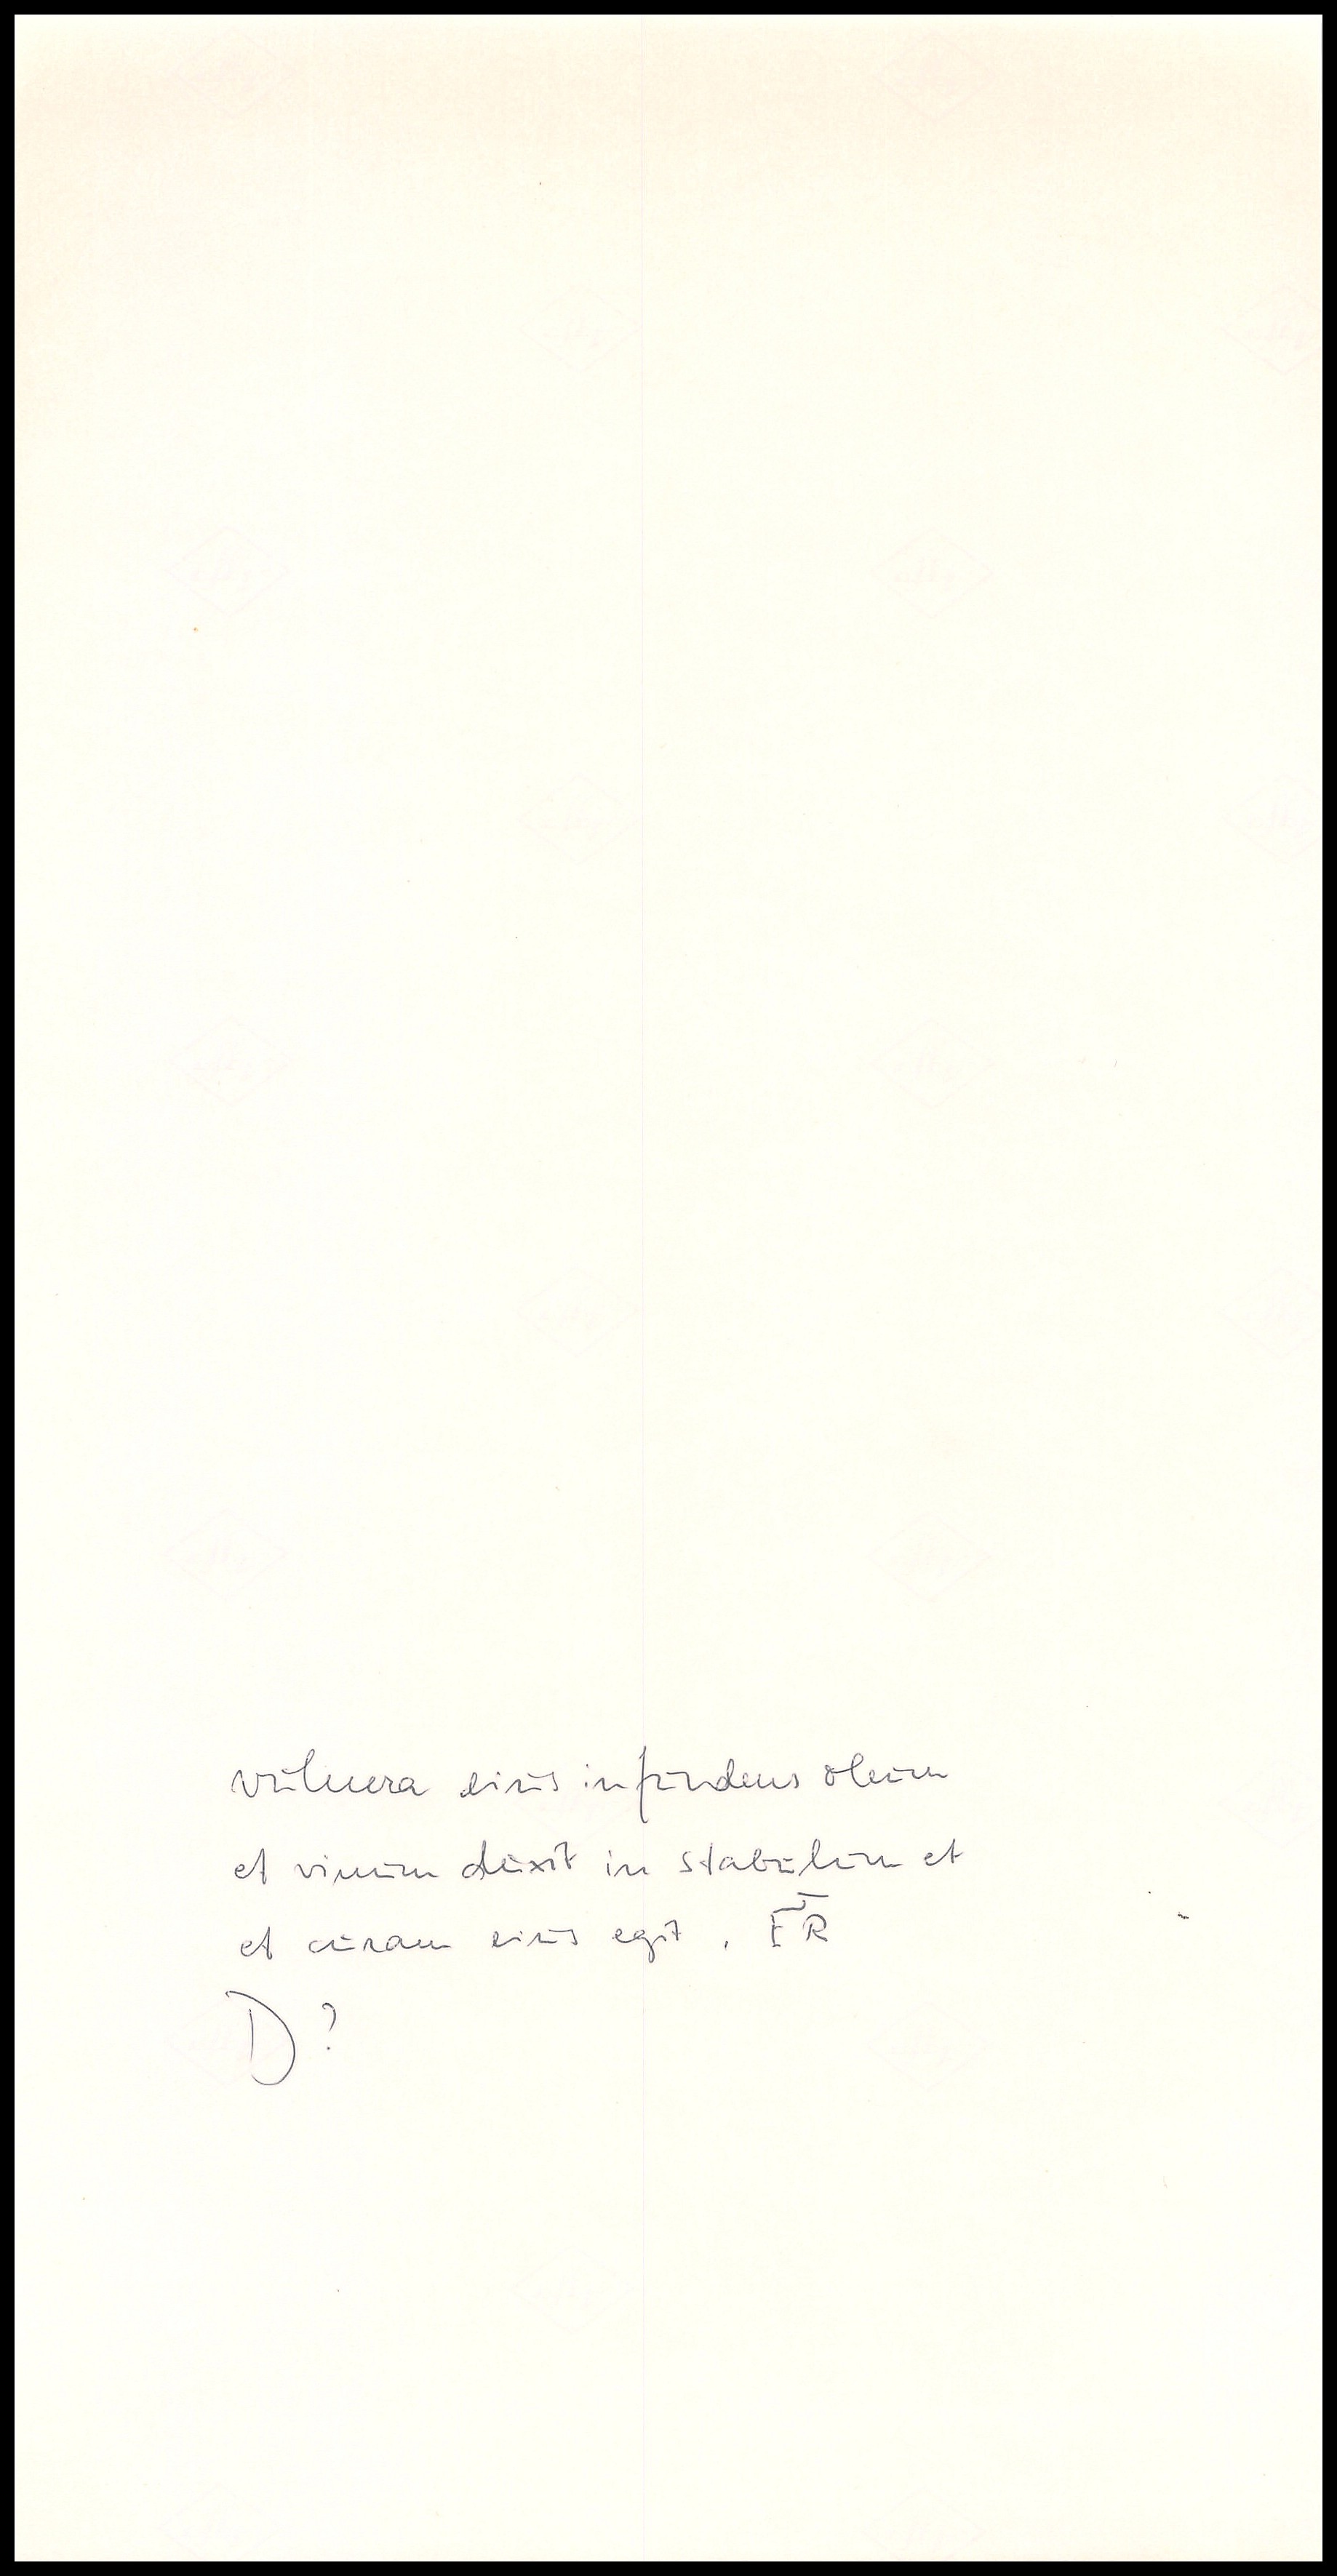 vulnera eius infundens oleum
et vinum duxit in stabulum et
et curam eius egit . ER
D ?